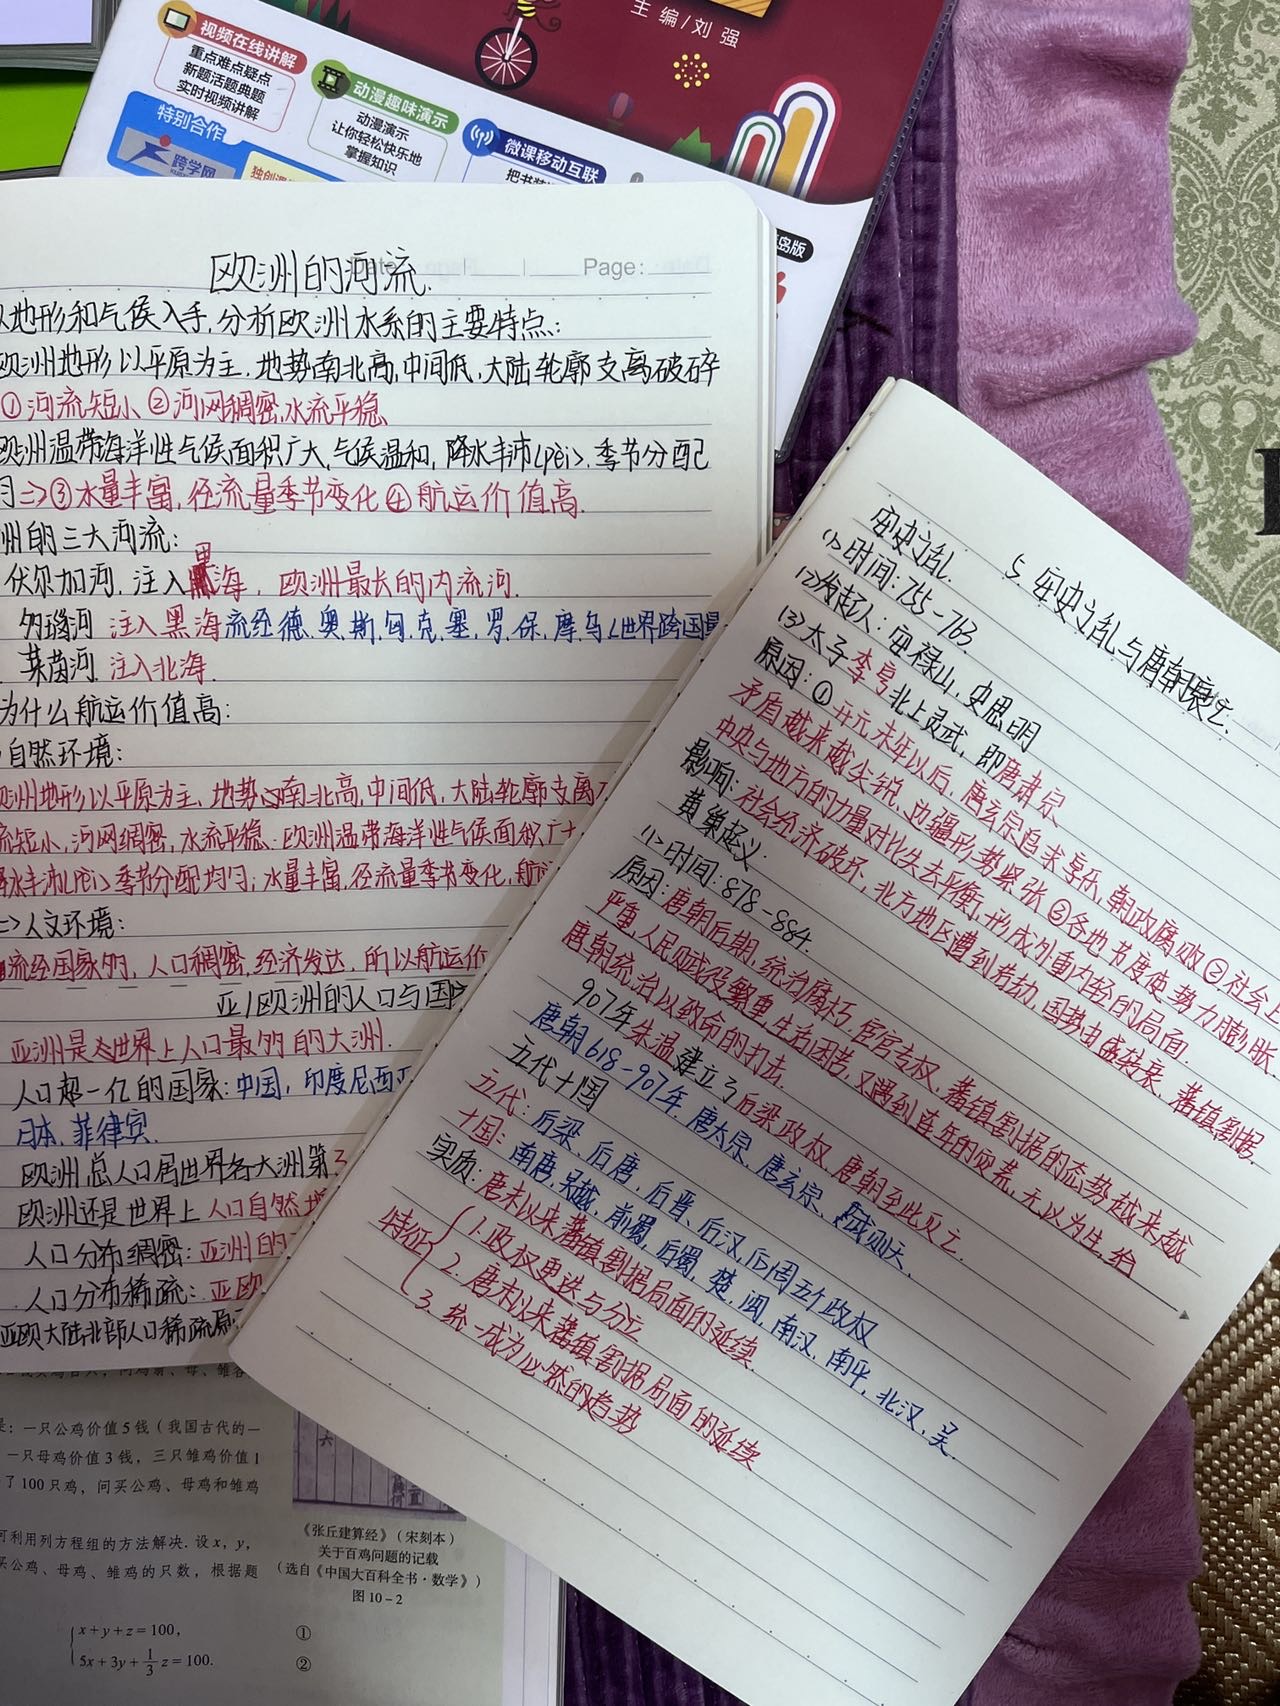 主编/刘强
视频在线讲解
重点难点疑点
新题活题典题
实时视频讲解
动漫趣味演示
动漫演示
让你轻松快乐地
掌握知识
微课移动互联
特别合作
跨学网
岛版
Date: Page:
欧洲的河流.
地形和气候入手,分析欧洲水系的主要特点:
欧洲地形以平原为主,地势南北高,中间低,大陆轮廓支离破碎
①河流短小、②河网稠密,水流平稳
欧洲温带海洋性气候面积广大,气候温和,降水丰沛(pèi),季节分配
匀=>③水量丰富,径流量季节变化 ④航运价值高.
洲的三大河流:
伏尔加河,注入黑海,欧洲最长的内流河.
多瑙河 注入黑海流经德.奥.斯.匈.克.塞.罗.保.摩.乌(世界跨国最
莱茵河 注入北海.
为什么航运价值高:
自然环境:
洲地形以平原为主,地势南北高,中间低,大陆轮廓支离
流短小,河网稠密,水流平稳.欧洲温带海洋性气候面积广大
降水丰沛(pèi)季节分配均匀;水量丰富,径流量季节变化,航运
=>人文环境:
流经国家多,人口稠密,经济发达,所以航运价
亚/欧洲的人口与国
亚洲是世界上人口最多的大洲.
人口超一亿的国家:中国,印度尼西亚
日本,菲律宾.
欧洲总人口居世界各大洲第3
欧洲还是世界上人口自然增
人口分布稠密:亚洲的
人口分布稀疏:亚欧
亚欧大陆北部人口稀疏原
5.安史之乱与唐朝衰亡.
安史之乱.
(1)时间:755-763
(2)发起人:安禄山,史思明
(3)太子李亨北上灵武,即唐肃宗
原因:①开元末年以后,唐玄宗追求享乐,朝政腐败②社会
矛盾越来越尖锐、边疆形势紧张③各地节度使势力膨胀
中央与地方的力量对比失去平衡,形成外重内轻的局面.
影响:社会经济破坏,北方地区遭到劫,国势由盛转衰,藩镇割据.
黄巢起义.
(1)时间:878-884.
原因:唐朝后期,统治腐朽,宦官专权,藩镇割据的态势越来越
严重,人民赋役繁重,生活困苦,又遇到连年的灾荒,无以为生.给
唐朝统治以致命的打击.
907年朱温建立了后梁政权,唐朝至此灭亡.
唐朝618-907年 唐太宗、唐玄宗、武则天.
五代十国
五代:后梁、后唐、后晋、后汉、后周五个政权
十国:南唐,吴越,前蜀,后蜀,楚,闽,南汉,南平,北汉,吴.
实质:唐末以来藩镇割据局面的延续
特征{1.政权更迭与分立
2.唐末以来藩镇割据局面的延续
3.统一成为必然的趋势
一只公鸡价值5钱(我国古代的一
一只母鸡价值3钱,三只雏鸡价值1
了100只鸡,问买公鸡、母鸡和雏鸡
可利用列方程组的方法解决.设x,y,
买公鸡、母鸡、雏鸡的只数,根据题
x+y+z=100, ①
5x+3y+1/3z=100. ②
《张丘建算经》(宋刻本)
关于百鸡问题的记载
(选自《中国大百科全书·数学》)
图10-2